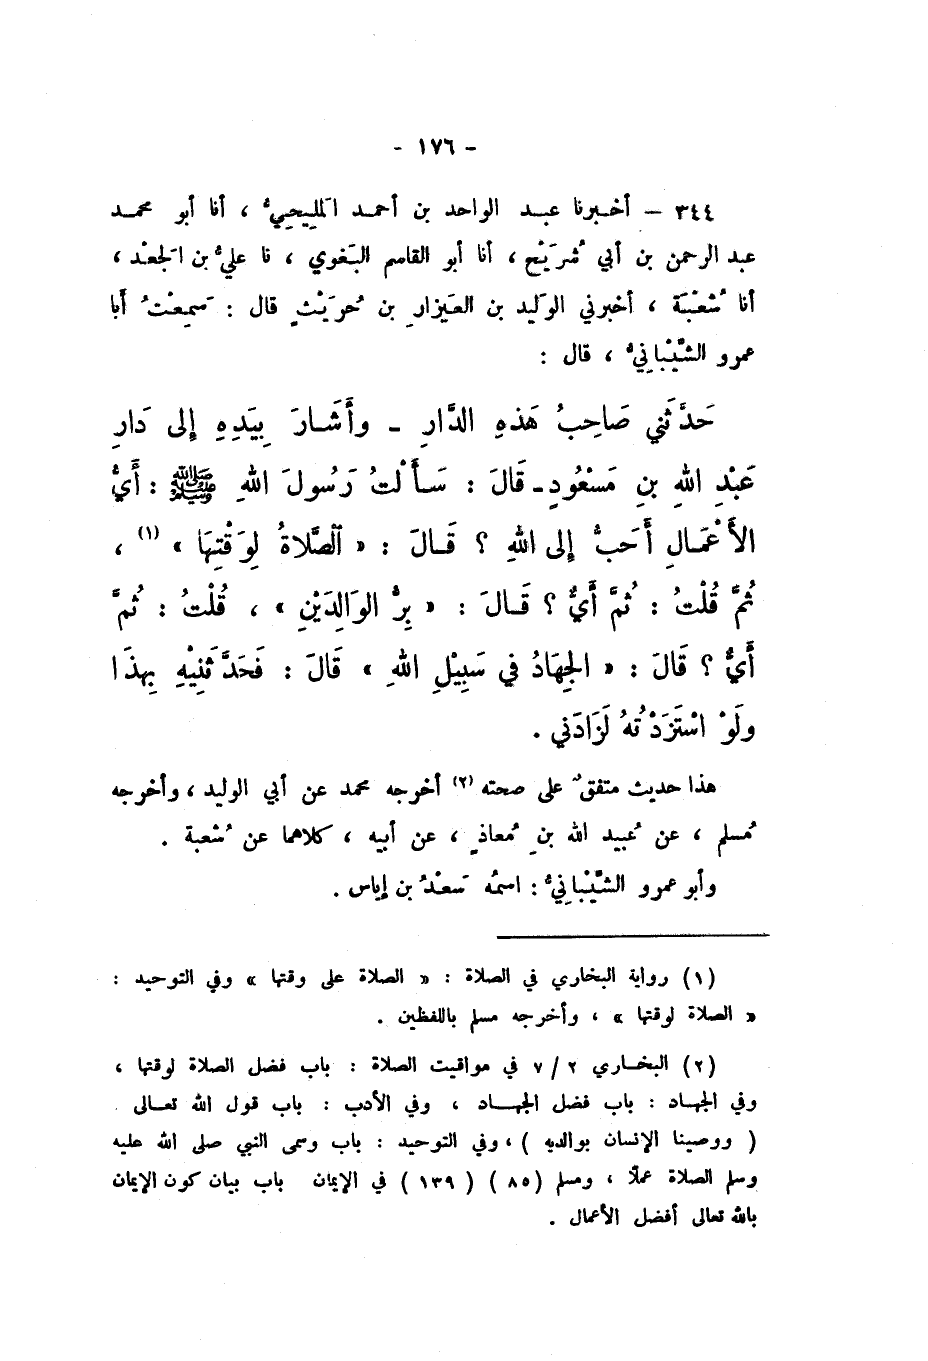 - ١٧٦ -
٣٤٤ – أخبرنا عبد الواحد بن أحمد المَلِيحِيُّ ، أنا أبو محمد
عبد الرحمن بن أبي شُرَيْح ، أنا أبو القاسم البَغوي ، نا عليُّ بن الجَعْد ،
أنا شُعْبَة ، أخبرني الوَليد بن العَيزارِ بن حُرَيْثٍ قال : سَمِعْتُ أبا
عمرو الشَّيْبانيُّ ، قال :
حَدَّثَني صَاحِبُ هَذهِ الدَّارِ - وأَشَارَ بِيَدِهِ إلى دَارِ
عَبْدِ اللهِ بنِ مَسْعُودٍ- قَالَ : سَأَلْتُ رَسُولَ اللهِ ﷺ : أَيُّ
الأَعْمَالِ أَحَبُّ إلى اللهِ ؟ قَالَ : « الصَّلاةُ لِوَقْتِهَا » (١) ،
ثُمَّ قُلْتُ : ثُمَّ أَيُّ ؟ قَالَ : « بِرُّ الوَالِدَيْنِ » ، قُلْتُ : ثُمَّ
أَيُّ ؟ قَالَ : « الجِهَادُ في سَبِيْلِ اللهِ » قَالَ : فَحَدَّثَنِيْهِ بِهذَا
ولَوْ اسْتَزَدْتُهُ لَزَادَني .
هذا حديث متفقٌ على صحته (٢) أخرجه محمد عن أبي الوليد ، وأخرجه
مُسلم ، عن عُبيد الله بنِ مُعاذٍ ، عن أبيه ، كلاهما عن شُعبة .
وأبو عمرو الشَّيْبانِيُّ : اسمُه سَعْدُ بن إياس .
(١) رواية البخاري في الصلاة : « الصلاة على وقتها » وفي التوحيد :
« الصلاة لوقتها » ، وأخرجه مسلم باللفظين .
(٢) البخاري ٢ / ٧ في مواقيت الصلاة : باب فضل الصلاة لوقتها ،
وفي الجهاد : باب فضل الجهاد ، وفي الأدب : باب قول الله تعالى
( ووصينا الإنسان بوالديه ) ، وفي التوحيد : باب وسمى النبي صلى الله عليه
وسلم الصلاة عملًا ، ومسلم (٨٥) (١٣٩) في الإيمان باب بيان كون الإيمان
بالله تعالى أفضل الأعمال .